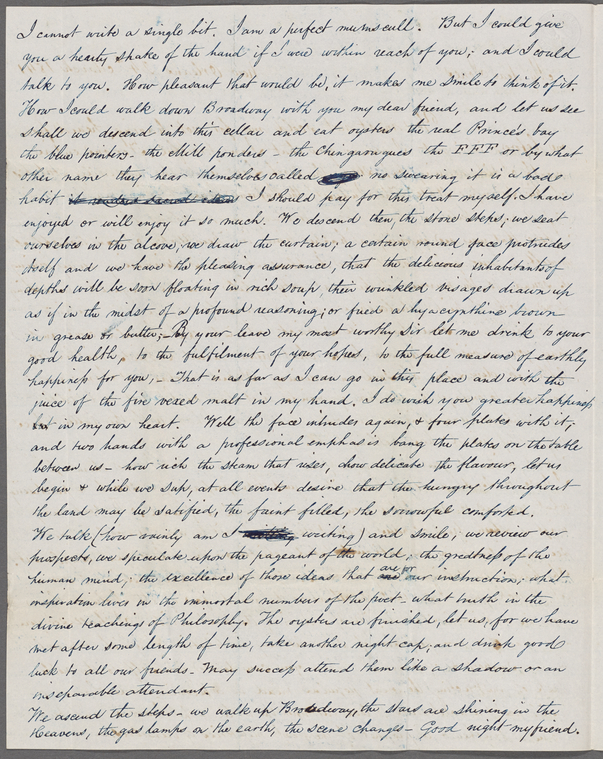 I cannot write a single bit. I am a perfect mumscull. But I could give
you a hearty shake of the hand if I were within reach of you; and I could
talk to you. How pleasant that would be, it makes me smile to think of it.
How I could walk down Broadway with you my dear friend, and let us see
shall we descend into this cellar and eat oysters the real Princes bay
the blue pointers - the Mill ponders - the Chingaroraques the FFF or by what
other name they hear themselves called no swearing it is a bad
habit I should pay for this treat myself. I have
enjoyed or will enjoy it so much. We descend then the stone steps; we seat
ourselves in the alcove, we draw the curtain; a certain round face protrudes
itself and we have the pleasing assurance, that the delicious inhabitants of
depths will be soon floating in rich soup, their wrinkled visages drawn up
as if in the midst of a profound reasoning; or fried a hyacynthine brown
in grease or butter; - By your leave my most worthy Sir let me drink to your
good health, to the fulfilment of your hopes, to the full measure of earthly
happiness for you; - That is as far as I can go in this place and with the
juice of the five vexed malt in my hand. I do wish you greater happiness
in my own heart. Well the face intrudes again, & four plates with it;
and two hands with a professional emphasis bang the plates on the table
between us - how rich the steam that rises, how delicate the flavour, let us
begin & while we sup, at all events desire that the hungry throughout
the land may be satisfied, the faint filled, the sorrowful comforted.
We talk (how vainly am I writing) and smile; we review our
prospects, we speculate upon the pageant of the world, the greatness of the
human mind; the excellence of those ideas that are for our instruction; what
inspiration lives in the immortal numbers of the poet - what truth in the
divine teachings of Philosophy. The oysters are finished, let us, for we have
met after some length of time, take another night cap; and drink good
luck to all our friends - May success attend them like a shadow or an
inseparable attendant.
We ascend the steps - we walk up Broadway, the stars are shining in the
Heavens, the gas lamps on the earth, the scene changes - Good night my friend.